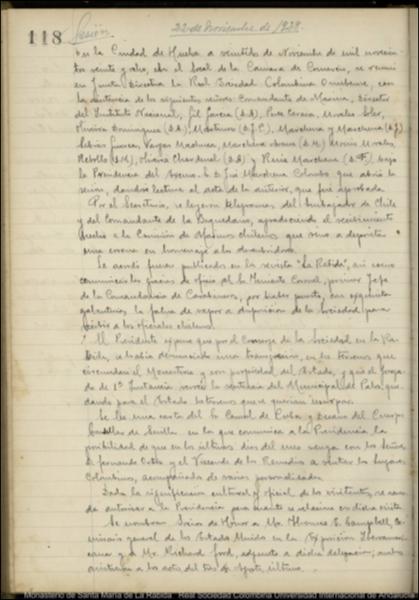 118 Sesión 22 de Noviembre de 1928.
En la Ciudad de Huelva a veintidos de Noviembre de mil novecien-
tos veinte y ocho, en el local de la Cámara de Comercio, se reunió
en Junta Directiva la Real Sociedad Colombina Onubense, con
la asistencia de los siguientes señores: Comandante de Marina, Director
del Instituto Nacional, Gil García (D. A), Morales
Oliveira Dominguez (D. A.), Martinez (D. J. C), Marchena y Marchena (D. J)
Cebrian Vargas Machuca, Marchena (D. M) Morales
Rebollo (D. M), (D. A) y Marchena (D. F), bajo
la Presidencia del D. José Marchena Colombo que abrió la
sesión, dandose lectura al acta de la anterior, que fué aprobada.
Por el Secretario, se leyeron telegramas del Embajador de Chile
y del Comandante de la Baquedano, agradeciendo el recibimiento
hecho a la Comisión de Marinos chilenos que vino a depositar
una corona en homenaje a los descubridores.
Se acordó fueran publicados en la revista "La Rabida", así como
comunicarle las gracias de oficio al Sr Teniente Coronel, primer Jefe
de la Comandancia de Carabineros, por haber puesto, con exquisita
galantería, la falua de vapor a disposición de la Sociedad para
recibir a los oficiales chilenos.
El Presidente expone que por el Conserje de la Sociedad en la Ra-
bida, se había denunciado una transgresión, en los terrenos que
circundan el Monasterio y son propiedad del Estado, y que el Juzga-
do de 1ª Instancia revocó la sentencia del Municipal de Palos, que-
dando para el Estado los terrenos que se querían usurpar.
Se lee una carta del Sr Consul de Cuba y Decano del Cuerpo
Consular de Sevilla en la que comunica a la Presidencia, la
posibilidad de que en los últimos dias del mes venga con los Señores
D. Fernando Ortiz y el Vizconde de los Remedios a visitar los lugares
Colombinos, acompañado de varias personalidades.
Dada la significación cultural y oficial de los visitantes, se acuer-
da autorizar a la Presidencia para cuanto se relacione con dicha visita.
Se nombran Socios de Honor a Mr. Thomas E. Campbell, Co-
misario general de los Estados Unidos en la Exposición Iberoameri-
cana y a Mr Richard Ford, adjunto a dicha delegación; ambos
asistieron a los actos del tres de Agosto, último.
Monasterio de Santa María de La Rábida Real Sociedad Colombina Universidad Internacional de Andalucía